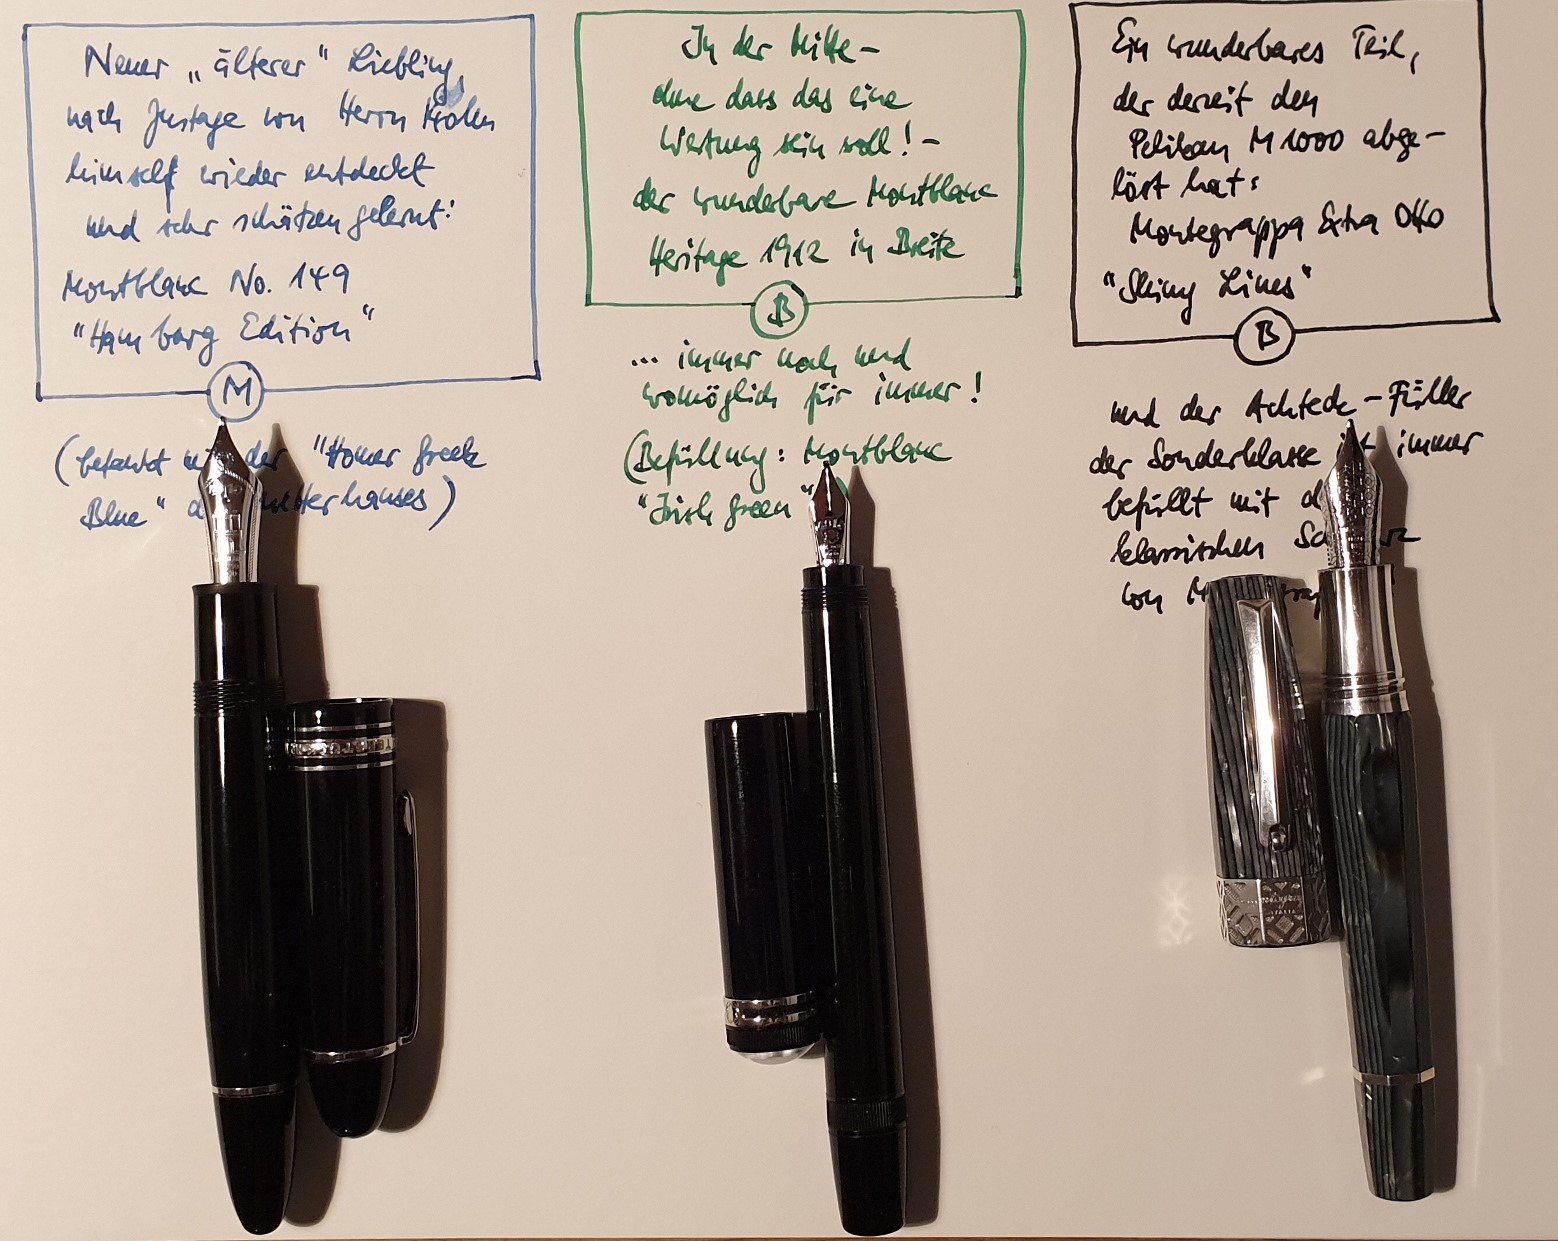 Neuer „älterer" Liebling,
nach Justage von Herrn
himself wieder entdeckt
und sehr schätzen gelernt:
Montblanc No. 149
"Hamburg Edition"
M
(betankt mit der "Homer Greek
Blue" d Mutterhauses)
In der Mitte -
ohne dass das eine
Wertung sein soll! -
der wunderbare Montblanc
Heritage 1912 in Breite
B
... immer noch und
womöglich für immer!
(Befüllung: Montblanc
"Irish Green"
Ein wunderbares Teil,
der derzeit den
Pelikan M1000 abge-
löst hat:
Montegrappa Extra Otto
"Shiny Lines"
B
und der Achteck-Füller
der Sonderklasse ist immer
befüllt mit d
klassischen Sc rz
von M grap